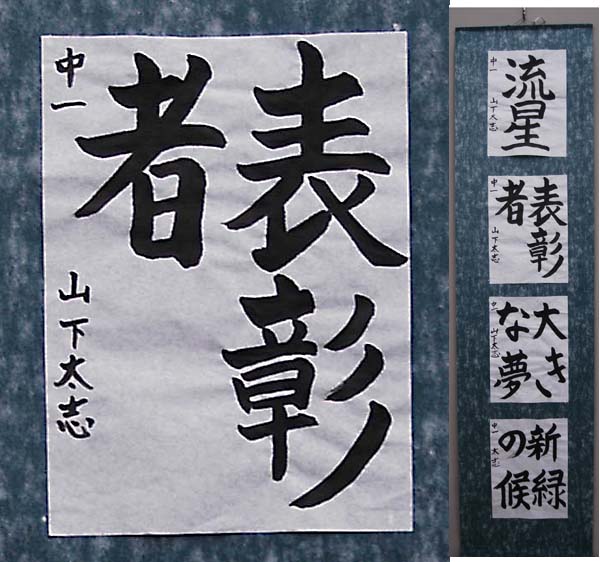 表彰
者
中一 山下太志
流星
中一 山下太志
表彰
者
中一 山下太志
大き
な夢
中一 山下太志
新緑
の候
中一 太志